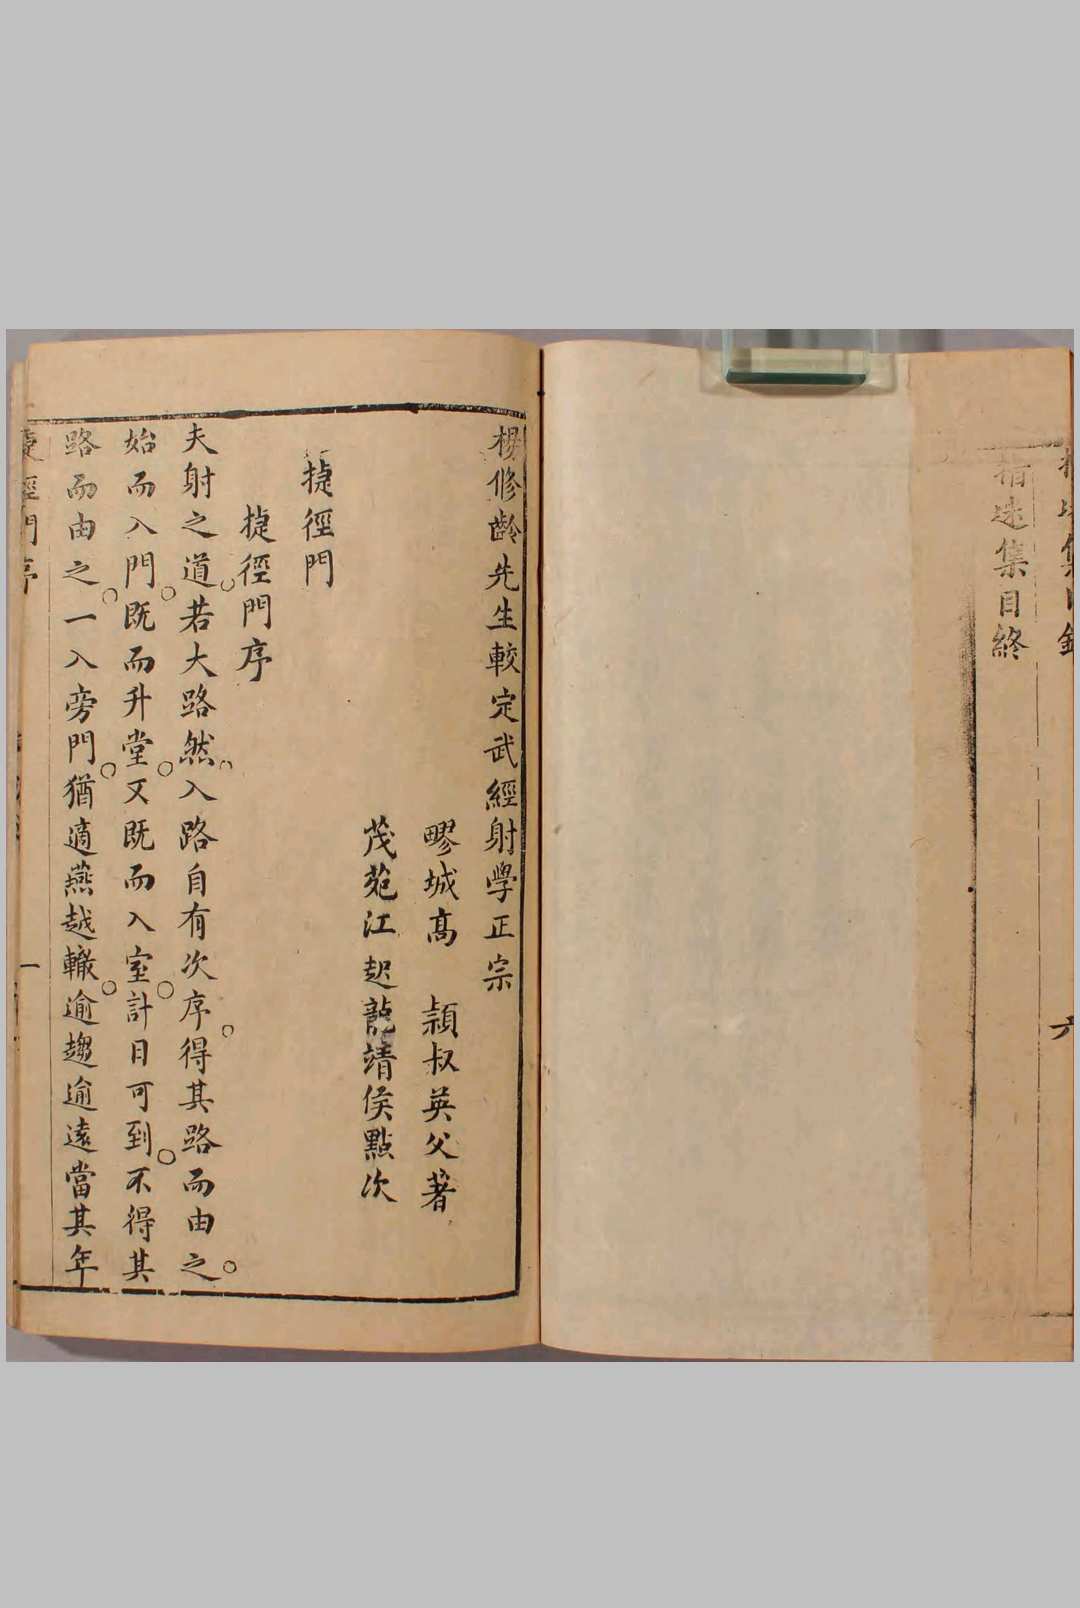 指迷集目終
楊修齡先生較定武經射學正宗
疁城高　頴叔英父著
茂苑江起龍靖侯點次
捷徑門
捷徑門序
夫射之道。若大路然。入路自有次序。得其路而由之。
始而入門。既而升堂。又既而入室。計日可到。不得其
路而由之。一入旁門。猶適燕越轍。逾趨逾遠當其年
捷徑門序
一